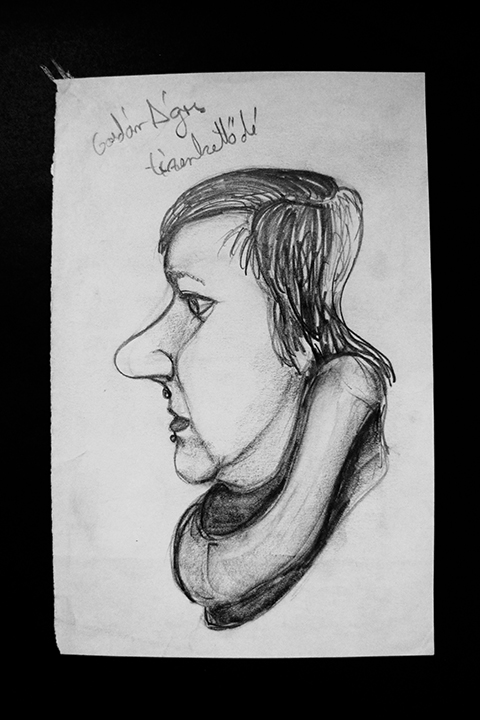 Gordán Ágnes
tizenkettő dé